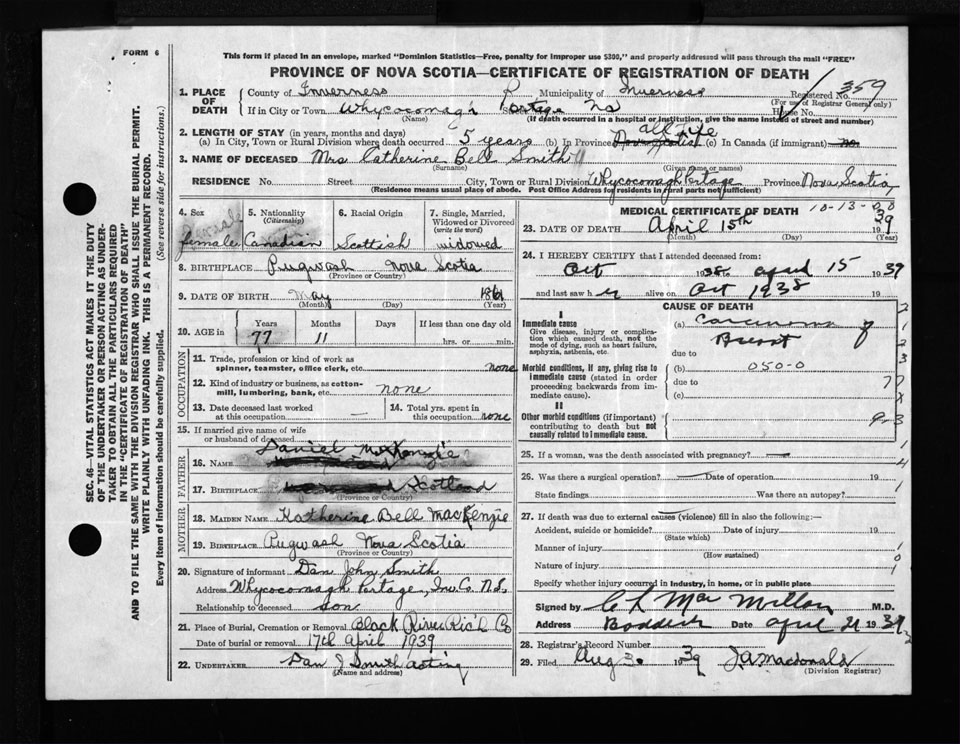 FORM 6
This form if placed in an envelope, marked "Dominion Statistics—Free, penalty for improper use $300," and properly addressed will pass through the mail "FREE"
PROVINCE OF NOVA SCOTIA—CERTIFICATE OF REGISTRATION OF DEATH
1. PLACE OF DEATH
County of Inverness Municipality of Inverness Registered No. 359
(For use of Registrar General only)
If in City or Town Whycocomagh Portage NS House No.
(Name) (If death occurred in a hospital or institution, give the name instead of street and number)
2. LENGTH OF STAY (in years, months and days) all life
(a) In City, Town or Rural Division where death occurred 5 years (b) In Province Nova Scotia (c) In Canada (if immigrant) no
3. NAME OF DECEASED Mrs Catherine Bell Smith
(Surname) (Given name or names)
RESIDENCE No. Street City, Town or Rural Division Whycocomagh Portage Province Nova Scotia
(Residence means usual place of abode. Post Office Address for residents in rural parts not sufficient)
4. Sex female
5. Nationality (Citizenship) Canadian
6. Racial Origin Scottish
7. Single, Married, Widowed or Divorced (write the word) widowed
8. BIRTHPLACE Pugwash Nova Scotia
(Province or Country)
9. DATE OF BIRTH May 1861
(Month) (Day) (Year)
10. AGE in Years Months Days If less than one day old
77 11 hrs. or min.
OCCUPATION
11. Trade, profession or kind of work as spinner, teamster, office clerk, etc. none
12. Kind of industry or business, as cotton-mill, lumbering, bank, etc. none
13. Date deceased last worked at this occupation —
14. Total yrs. spent in this occupation none
15. If married give name of wife or husband of deceased
FATHER
16. NAME Daniel McKenzie
17. BIRTHPLACE Scotland
(Province or Country)
MOTHER
18. MAIDEN NAME Katherine Bell MacKenzie
19. BIRTHPLACE Pugwash Nova Scotia
(Province or Country)
20. Signature of informant Dan John Smith
Address Whycocomagh Portage, Inv. Co. N.S.
Relationship to deceased son
21. Place of Burial, Cremation or Removal Black River Rich Co
Date of burial or removal 17th April 1939
22. UNDERTAKER Dan J Smith acting
(Name and address)
MEDICAL CERTIFICATE OF DEATH 10-13-0,0
23. DATE OF DEATH April 15th 39
(Month) (Day) (Year)
24. I HEREBY CERTIFY that I attended deceased from:
Oct 1938 to April 15 1939
and last saw her alive on Oct 1938 19
CAUSE OF DEATH
I
Immediate cause
Give disease, injury or complication which caused death, not the mode of dying, such as heart failure, asphyxia, asthenia, etc.
(a) Carcinoma of
Breast
due to
Morbid conditions, if any, giving rise to immediate cause (stated in order proceeding backwards from immediate cause).
(b) 050-0
due to
(c)
II
Other morbid conditions (if important) contributing to death but not causally related to immediate cause.
25. If a woman, was the death associated with pregnancy? —
26. Was there a surgical operation? — Date of operation 19
State findings Was there an autopsy?
27. If death was due to external causes (violence) fill in also the following:—
Accident, suicide or homicide? Date of injury 19
(State which)
Manner of injury
(How sustained)
Nature of injury
Specify whether injury occurred in industry, in home, or in public place
Signed by C L MacMillan M.D.
Address Baddeck Date April 21 1939
28. Registrar's Record Number
29. Filed Aug 3. 1939 J A Macdonald
(Division Registrar)
SEC. 46—VITAL STATISTICS ACT MAKES IT THE DUTY
OF THE UNDERTAKER OR PERSON ACTING AS UNDER-
TAKER TO OBTAIN ALL THE PARTICULARS REQUIRED
IN THE "CERTIFICATE OF REGISTRATION OF DEATH"
AND TO FILE THE SAME WITH THE DIVISION REGISTRAR WHO SHALL ISSUE THE BURIAL PERMIT.
WRITE PLAINLY WITH UNFADING INK. THIS IS A PERMANENT RECORD.
Every item of information should be carefully supplied. (See reverse side for instructions.)